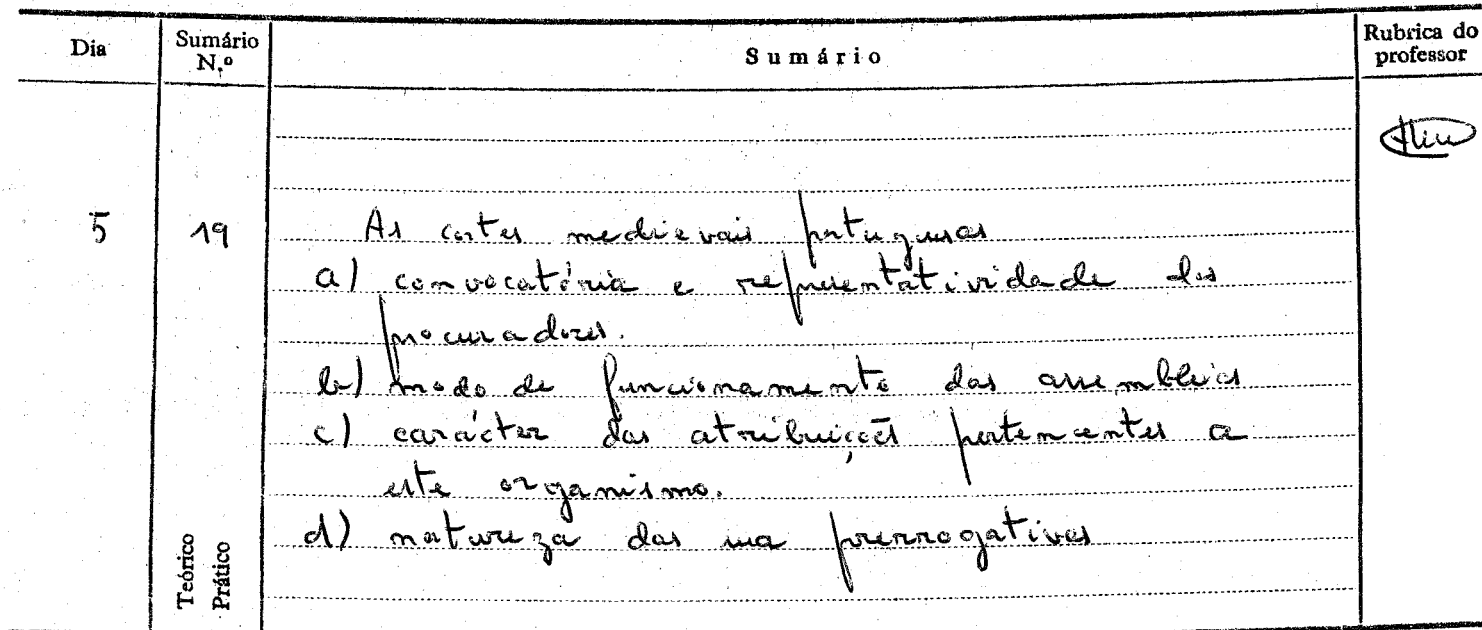 Dia
Sumário N.º
Sumário
Rubrica do professor
5
19
As cortes medievais portuguesas
a) convocatória e representatividade dos
procuradores.
b) modo de funcionamento das assembleias
c) carácter das atribuições pertencentes a
este organismo.
d) natureza das sua prerrogativas
Teórico
Prático